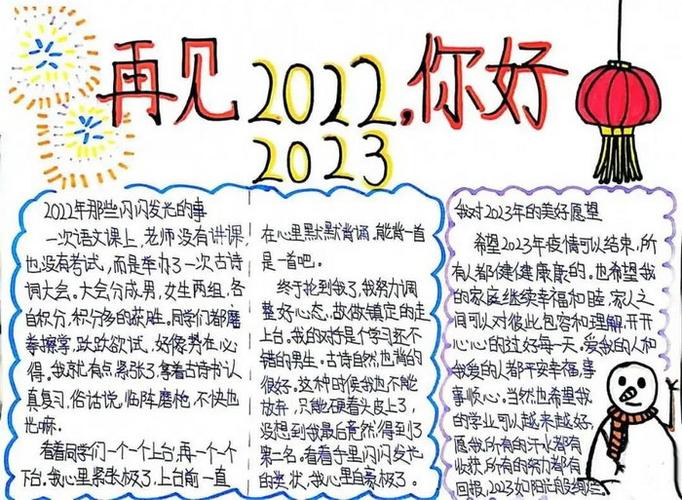 再见2022,你好
2023
2022年那些闪闪发光的事
一次语文课上,老师没有讲课,
也没有考试,而是举办了一次古诗
词大会。大会分成男,女生两组,各
自积分,积分多的获胜。同学们都磨
拳擦掌,跃跃欲试,好像势在必
得。我就有点紧张了,拿着古诗书认
真复习,俗话说,临阵磨枪,不快也
光嘛。
看着同学们一个一个上台,再一个一个
下台。我心里紧张极了,上台前一直
在心里默默背诵,能背一首
是一首吧。
终于轮到我了,我努力调
整好心态,故做镇定的走
上台。我的对手是个学习还不
错的男生。古诗自然也背的
很好。这种时候我也不能
放弃,只能硬着头皮上了,
没想到我最后竟然得到了
第一名。看着手里闪闪发光
的奖状,我心里自豪极了。
我对2023年的美好愿望
希望2023年疫情可以结束,所
有人都健健康康的。也希望我
的家庭继续幸福和睦,家人之
间可以对彼此包容和理解,开开
心心的过好每一天。爱我的人和
我爱的人都平安幸福,事
事顺心。当然也希望我
的学业可以越来越好,
愿我所有的汗水都有
收获,所有的努力都有
回报,2023如阳光般绚烂